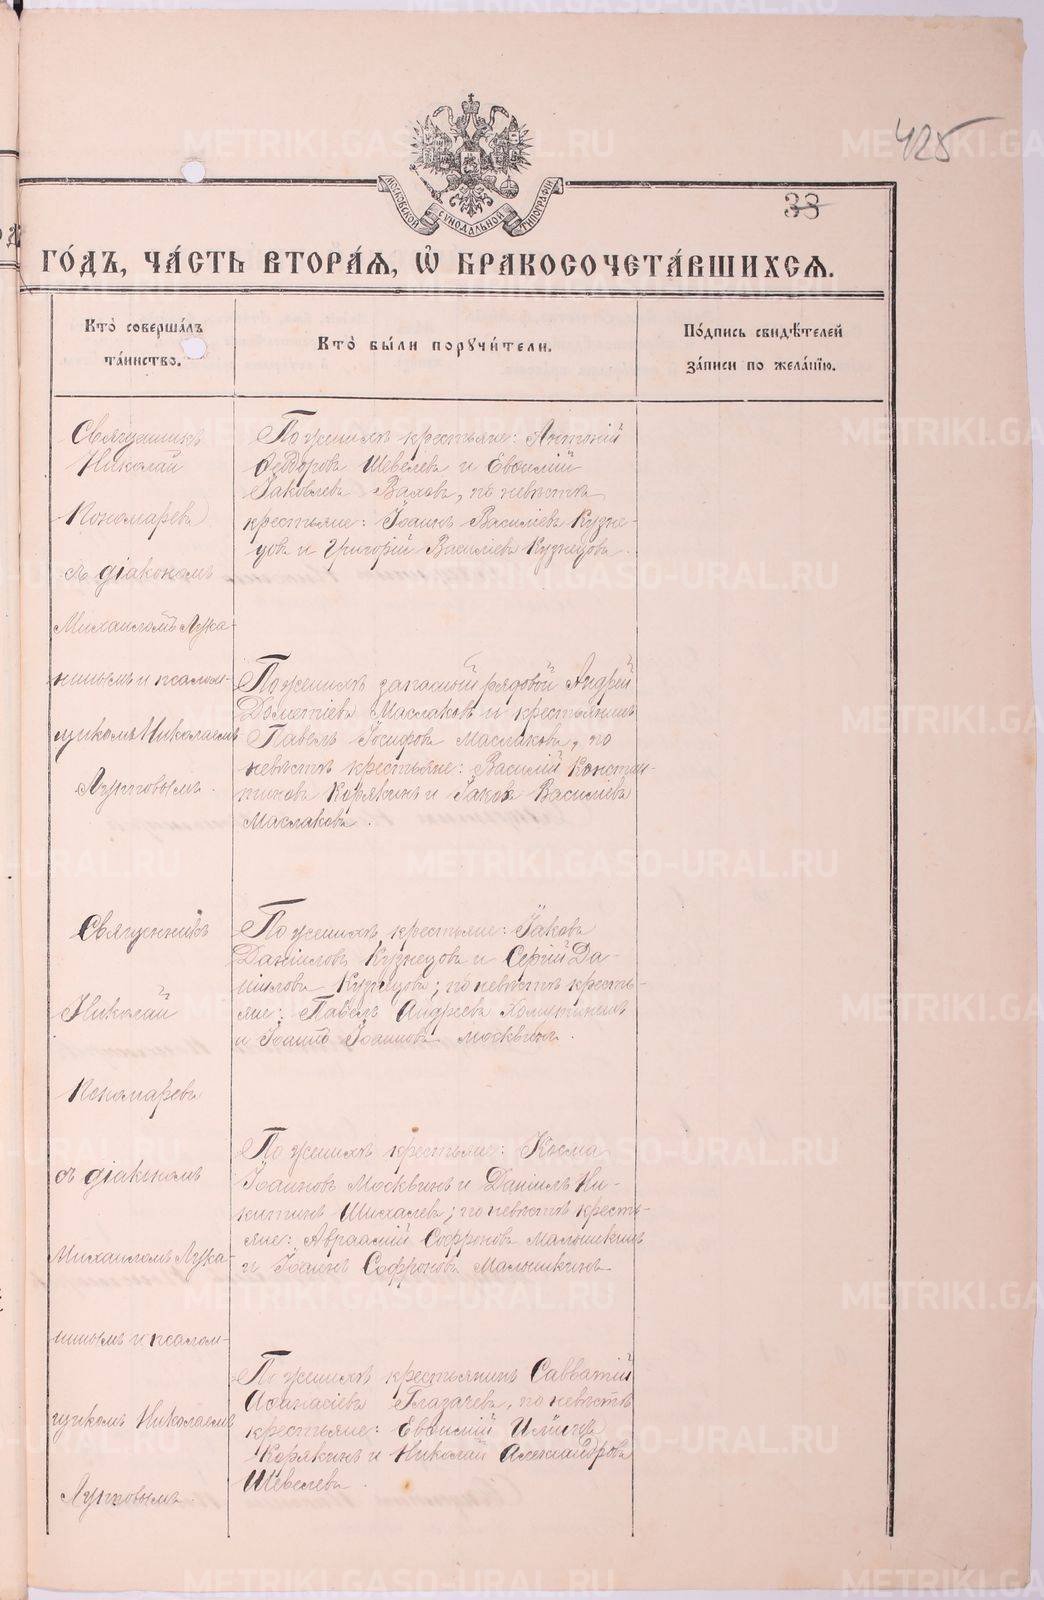 425
38
МОСКОВСКОЙ СѴНОДАЛЬНОЙ ТИПОГРАФІИ
ГО́ДЪ, ЧА́СТЬ ВТОРА́Я, Ѡ҆ БРАКОСОЧЕТА́ВШИХСЯ.
Кто̀ соверша́лъ
та́инство.
Кто̀ бы́ли порꙋчи́тели.
По́дпись свидѣ́телей
за́писи по жела́нїю.
Священникъ
Николай
Пономаревъ
съ діакономъ
Михаиломъ Лука-
нинымъ и псалом-
щикомъ Николаемъ
Луптовымъ.
По женихѣ крестьяне: Антоній
Ѳедоровъ Шевелевъ и Евѳимій
Іаковлевъ Ваховъ, по невѣстѣ
крестьяне: Іоаннъ Василіевъ Кузне-
цовъ и Григорій Василіевъ Кузнецовъ.
По женихѣ запасный рядовой Андрей
Дометіевъ Маслаковъ и крестьянинъ
Павелъ Іосифовъ Маслаковъ, по
невѣстѣ крестьяне: Василій Констан-
тиновъ Корякинъ и Іаковъ Василіевъ
Маслаковъ.
Священникъ
Николай
Пономаревъ
съ діакономъ
Михаиломъ Лука-
нинымъ и псалом-
щикомъ Николаемъ
Луптовымъ.
По женихѣ крестьяне: Іаковъ
Даніиловъ Кузнецовъ и Сергій Да-
ніиловъ Кузнецовъ; по невѣстѣ кресть-
яне: Павелъ Андреевъ
и Іоаннъ Іоанновъ Москвинъ.
По женихѣ крестьяне: Косма
Іоанновъ Москвинъ и Даніилъ Ни-
китинъ Шихалевъ; по невѣстѣ кресть-
яне: Авраамій Софроновъ Малышкинъ
и Іоаннъ Софроновъ Малышкинъ.
По женихѣ крестьянинъ Савватій
Аѳанасіевъ Глазачевъ, по невѣстѣ
крестьяне: Евѳимій Иліинъ
Корякинъ и Николай Александровъ
Шевелевъ.
METRIKI.GASO-URAL.RU